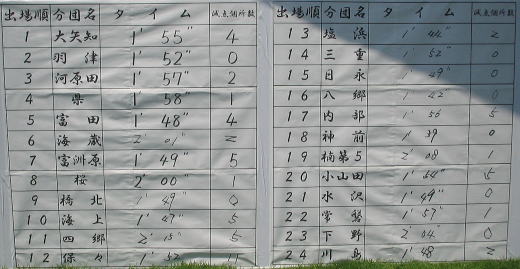 出場順 分団名 タイム 減点個所数
1 大矢知 1′55″ 4
2 羽津 1′52″ 0
3 河原田 1′57″ 2
4 県 1′58″ 1
5 富田 1′48″ 4
6 海蔵 2′01″ 2
7 富洲原 1′49″ 5
8 桜 2′00″ 1
9 橋北 1′49″ 0
10 海上 1′47″ 5
11 四郷 2′15″ 5
12 保々 1′52″ 11
出場順 分団名 タイム 減点個所数
13 塩浜 1′44″ 2
14 三重 1′52″ 0
15 日永 1′49″ 0
16 八郷 1′42″ 0
17 内部 1′56 5
18 神前 1′39 0
19 楠第5 2′08 1
20 小山田 1′54″ 5
21 水沢 1′49″ 0
22 常磐 1′57″ 1
23 下野 2′04″ 0
24 川島 1′48 2